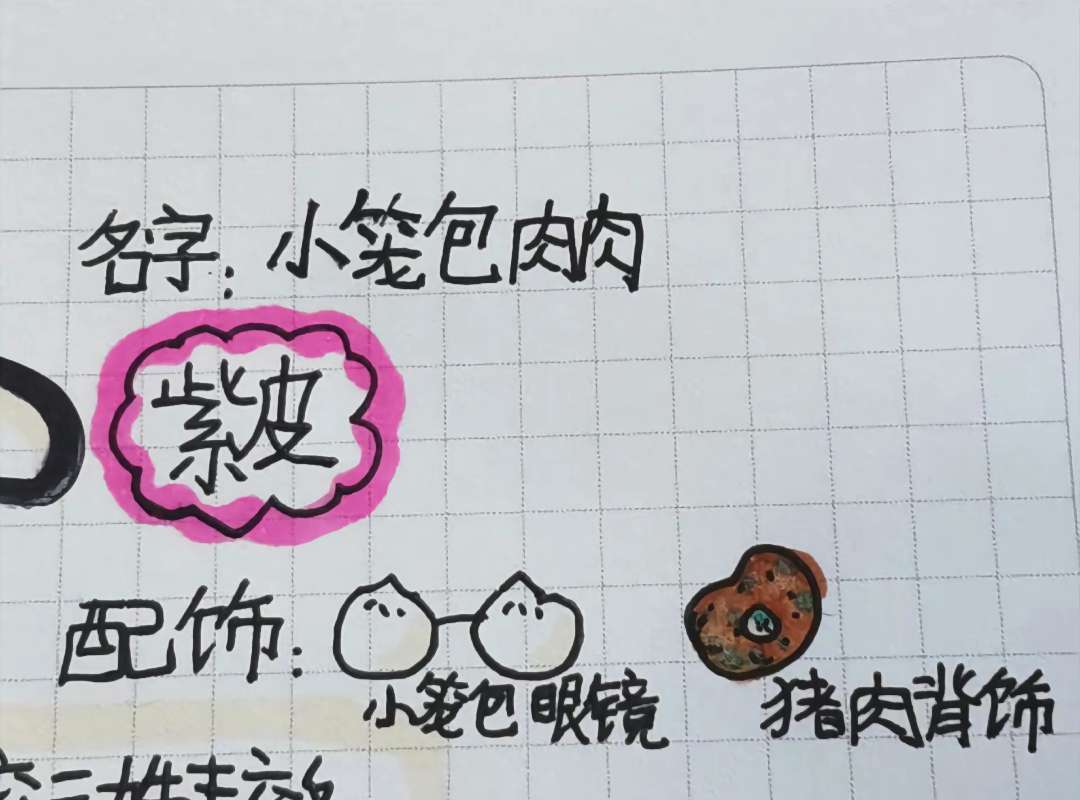 名字：小笼包肉肉
紫皮
配饰：
小笼包眼镜 猪肉背饰